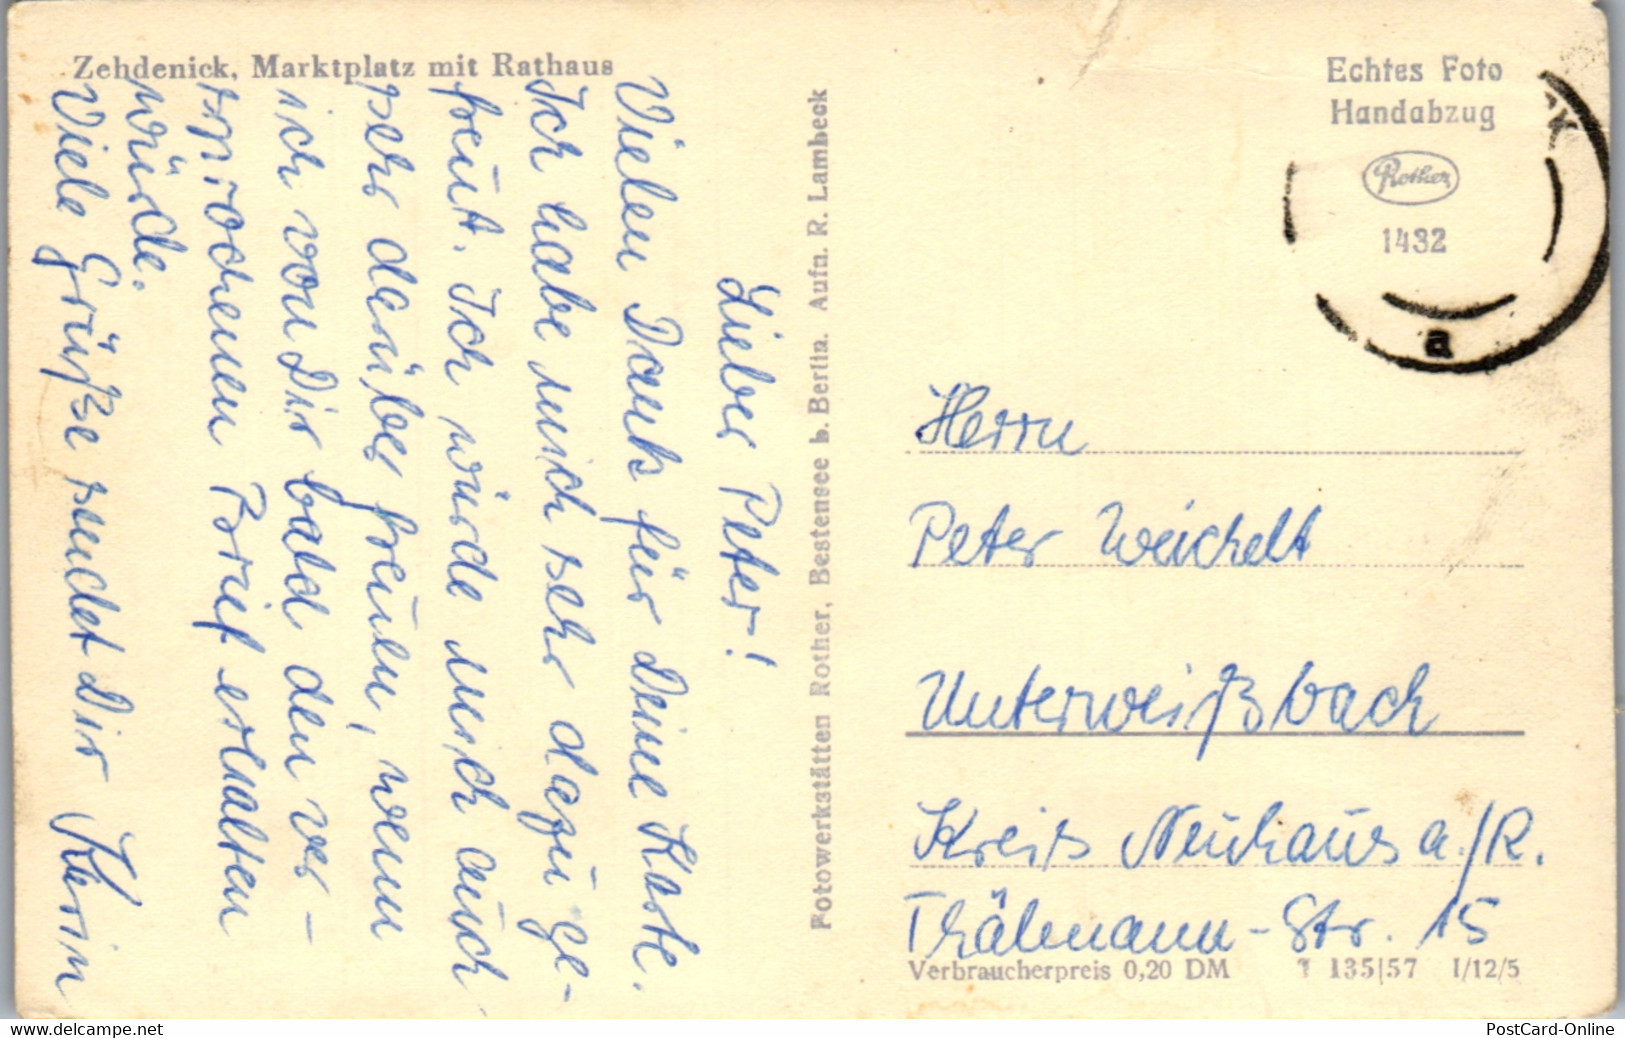 Zehdenick, Marktplatz mit Rathaus
Lieber Peter!
Vielen Dank für Deine Karte.
Ich habe mich sehr dazu ge-
freut. Ich würde mich auch
sehr darüber freuen, wenn
ich von Dir bald den ver-
sprochenen Brief erhalten
würde.
Viele Grüße sendet Dir Karin
Fotowerkstätten Rother, Bestensee b. Berlin. Aufn. R. Lambeck
Echtes Foto
Handabzug
Rother
1432
CK
a
Herrn
Peter Weichelt
Unterweißbach
Kreis Neuhaus a./R.
Thälmann-Str. 15
Verbraucherpreis 0,20 DM T 135|57 I/12/5
www.delcampe.net
PostCard-Online